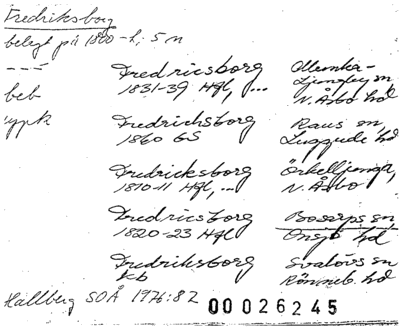 Fredriksborg
belagt på 1800-t, 5 m
--- Fredricsborg Munka-
1831-39 Hfl, ... Ljungby sn
beb N. Åsbo hd
ypk Fredrichsborg Raus sn,
1860 GS Luggude hd
Fredricksborg Örkelljunga,
1810-11 Hfl, ... N. Åsbo
Fredricsborg Bosarps sn
1820-23 Hfl Onsjö hd
Fredriksborg Svalövs sn
kb Rönneb. hd
Hallberg SOÅ 1976:82 00026245